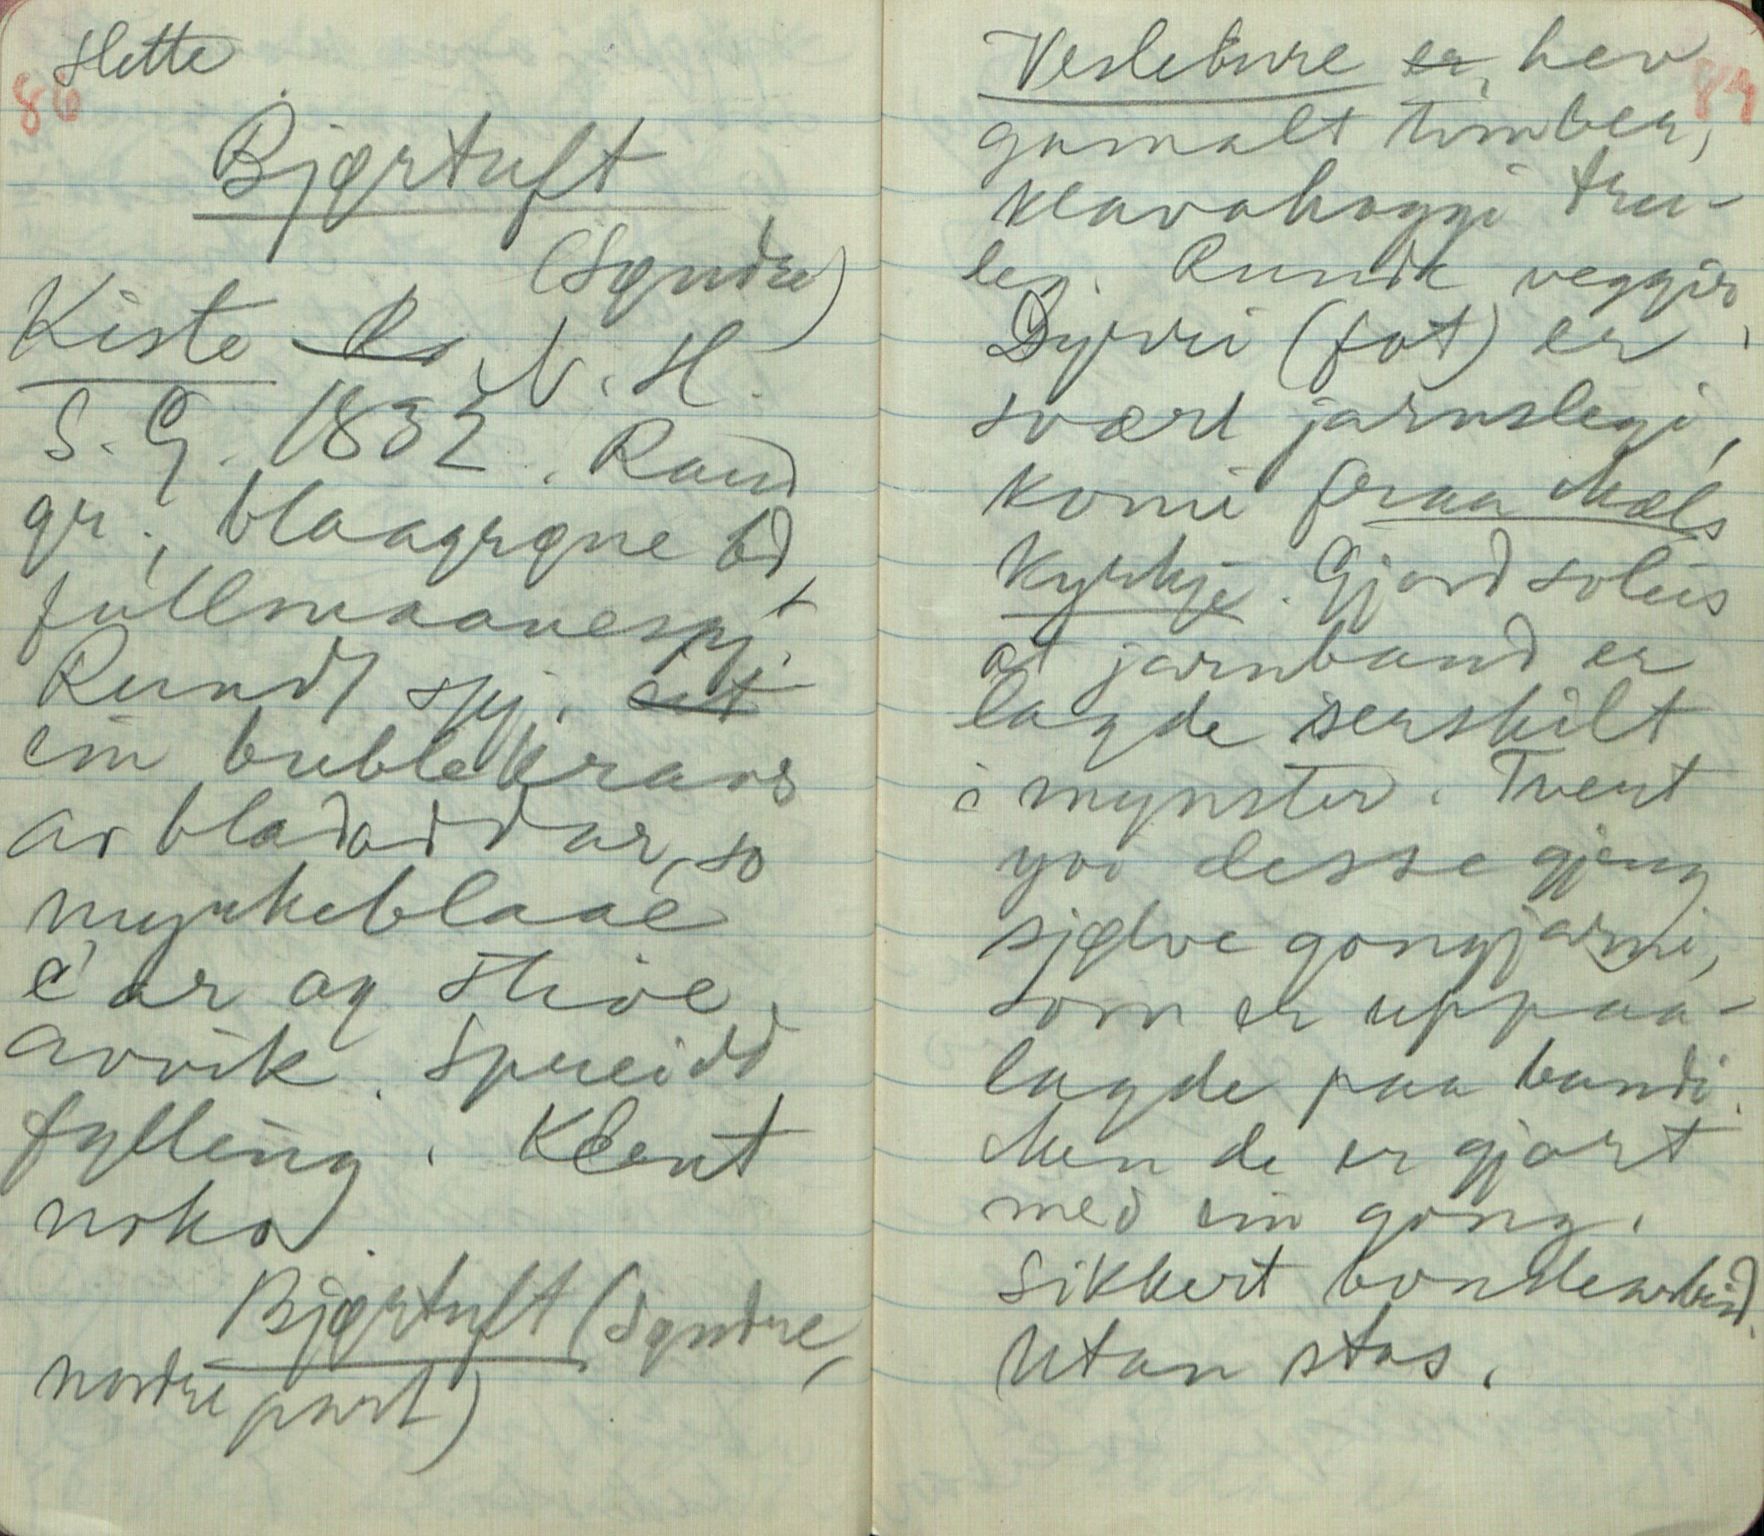 Slette
86
Bjørtuft
(Syndre)
Kiste N. H.
S. G. 1832. Raud
gr., blaagrøne bd,
fullmaanespj.
Rundt spj. eit
ein bublekrans
av bladoddar, so
myrkeblaae
c'ar og stive
avvik. Spreidd
fylling. Klent
noko.
Bjørtuft (Syndre,
nordre part)
87
Veslebure er, hev
gamalt timber,
klavahoggi tru-
leg. Runde veggir.
Dyrri (fat) er
svært jarnslegi,
komi fraa Mæls
kyrkje. Gjord soleis
at jarnband er
lagde serskilt
i mynster. Tvert
yvi desse gjeng
sjølve gongjarni,
som er uppaa-
lagde paa bandi.
Men de er gjort
med ein gong.
Sikkert bondearbeid.
Utan stas.